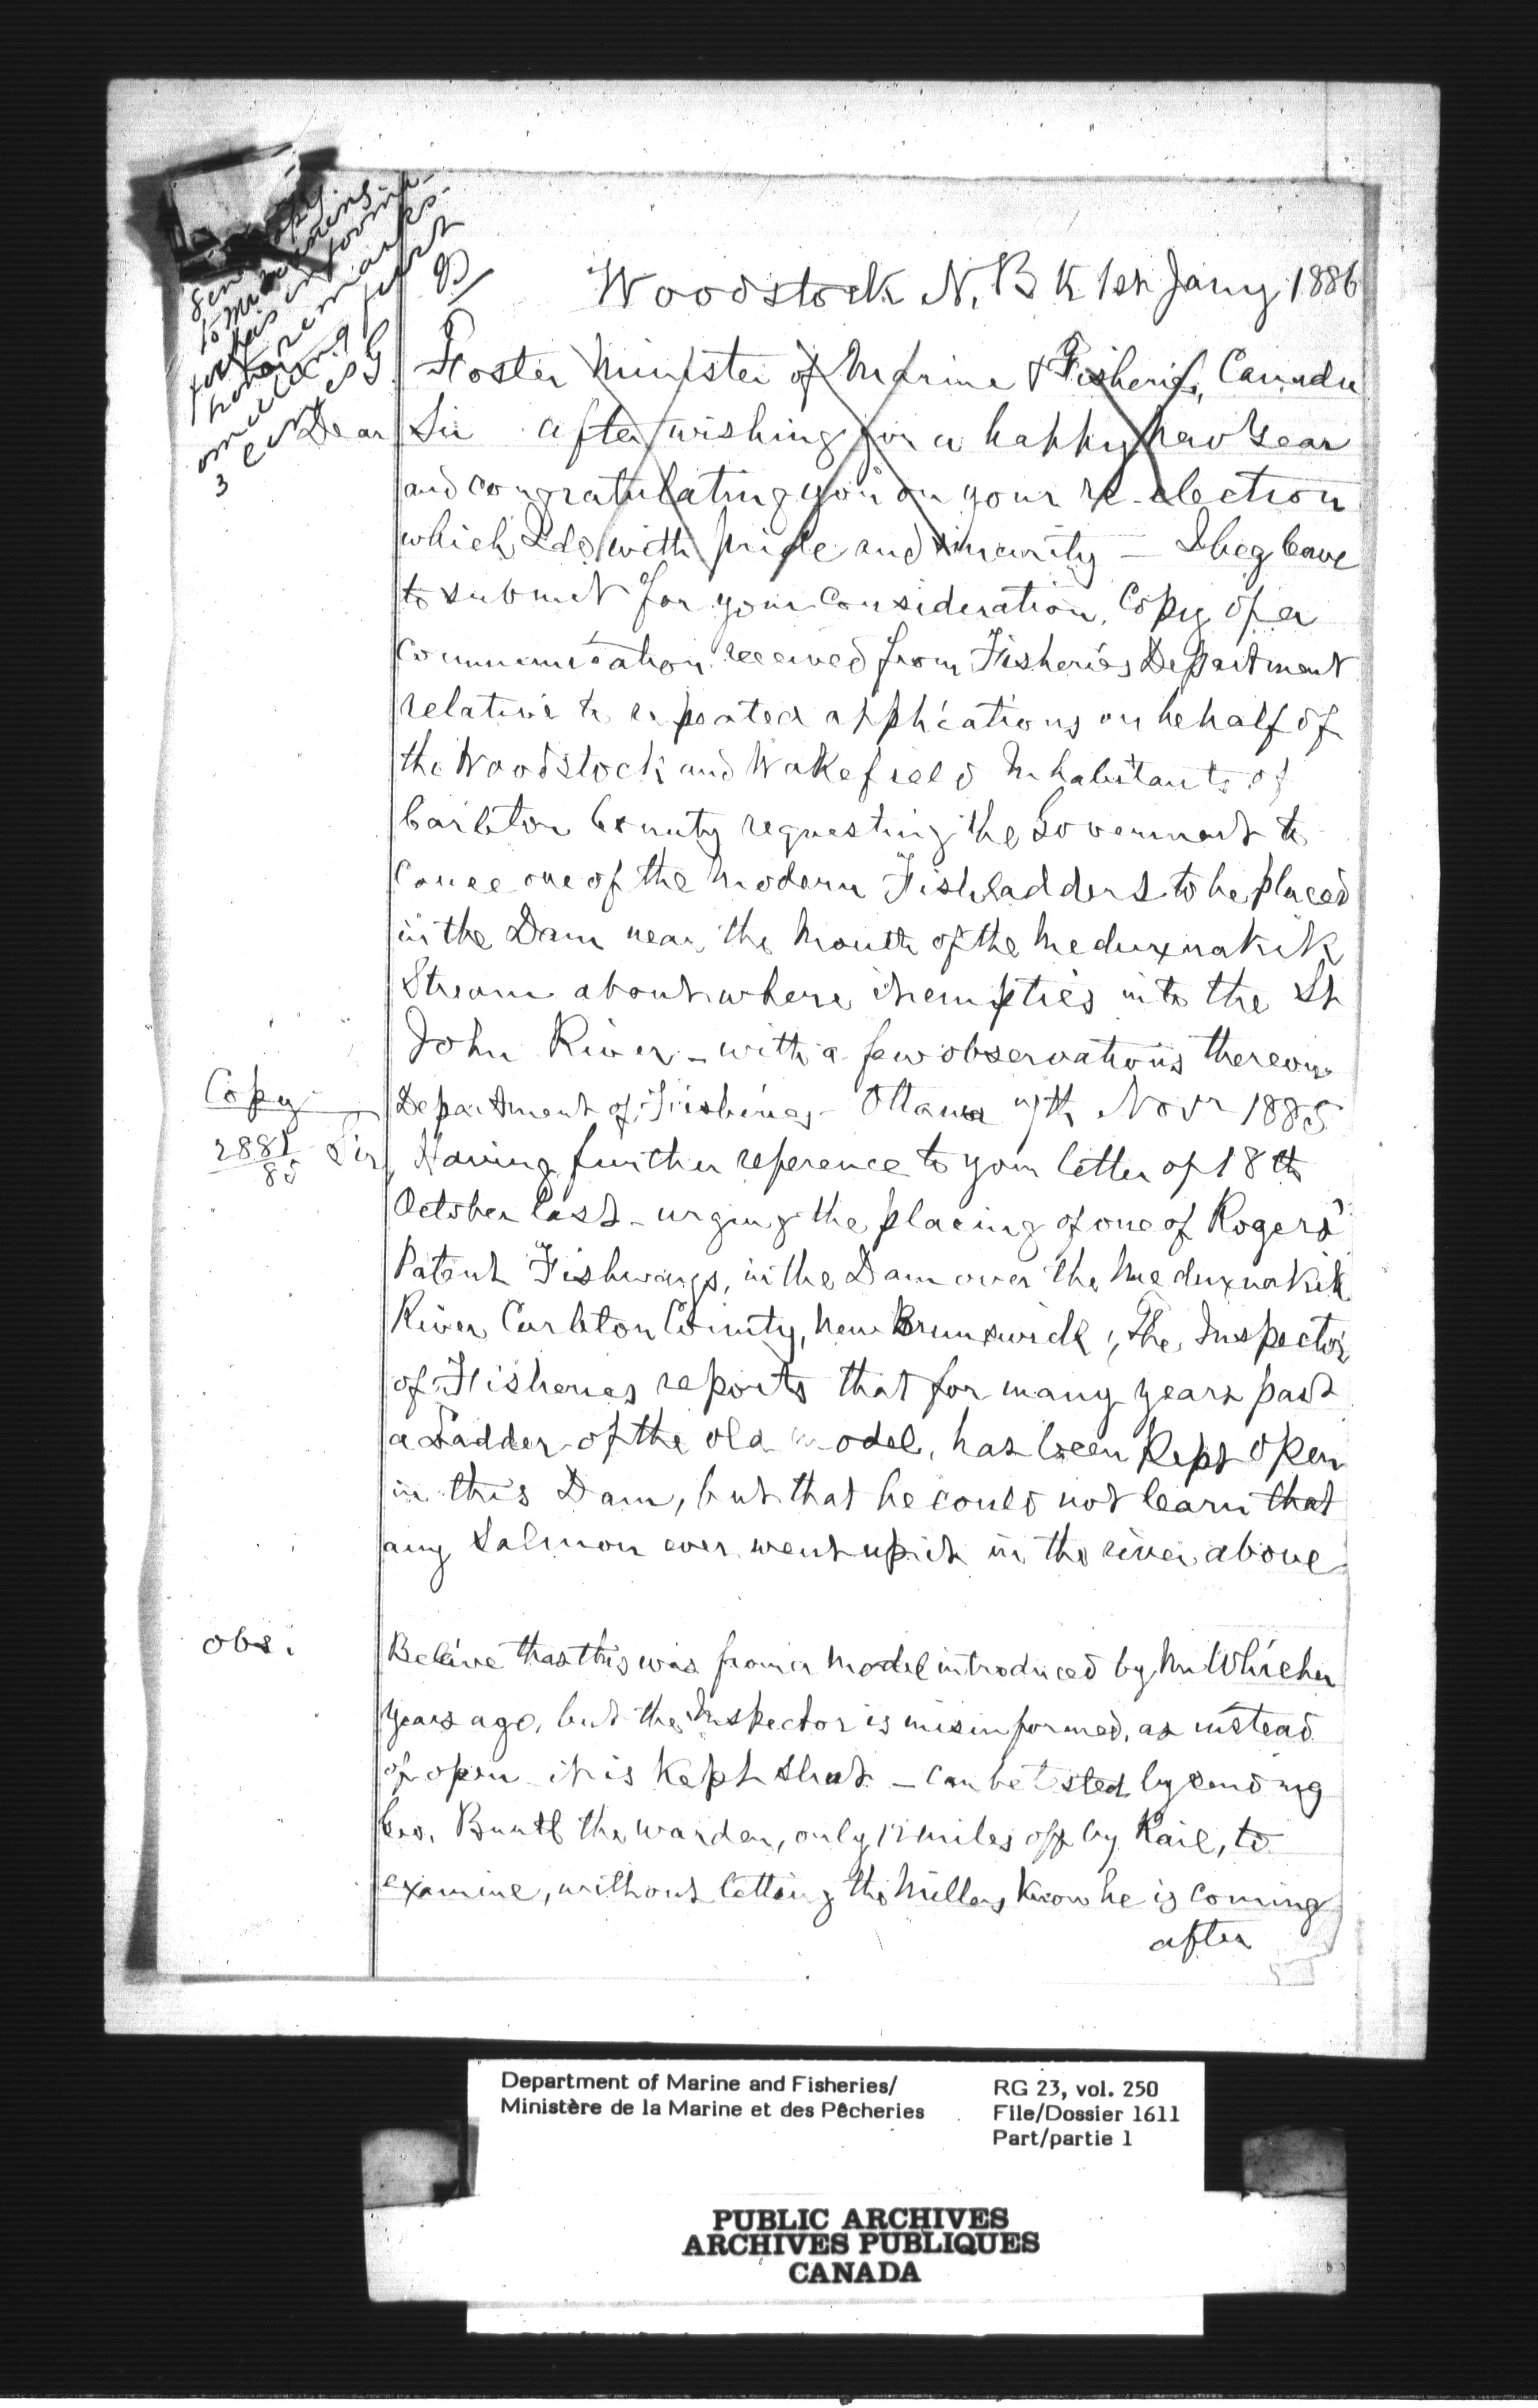 Send copy
to Mr Venning
for his information
hotoremarks
omitting first
3 lines G
Woodstock N.BK 1st Jany 1886
Foster Minister of Marine & Fisheries, Canada
Dear Sir after wishing you a happy new Year
and congratulating you on your re-election
which I do with pride and sincerity – I beg leave
to submit for your consideration, Copy of a
Communication received from Fisheries Department
relative to repeated applications on behalf of
the Woodstock and Wakefield Inhabitants of
Carleton County requesting the Government to
cause one of the modern Fishladders to be placed
in the Dam near the Mouth of the Meduxnakik
Stream about where it empties into the St
John River – with a few observations thereon
Copy
Department of Fisheries – Ottawa 7th Novr 1885
2881/85 Sir, Having further reference to your letter of 18th
October last – urging the placing of one of Rogers'
Patent Fishways, in the Dam over the Meduxnakik
River Carleton County, New Brunswick; The Inspector
of Fisheries reports that for many years past
a Ladder of the old model, has been Kept open
in this Dam, but that he could not learn that
any Salmon ever went up it in the river above
obs. Beleive that this was from a Model introduced by Mr Whicher
years ago, but the Inspector is misinformed, as instead
of open it is Kept shut – can be tested by sending
Geo. the warden, only 12 miles off by Rail, to
examine, without letting the Millers Know he is coming
after
Department of Marine and Fisheries/
Ministère de la Marine et des Pêcheries
RG 23, vol. 250
File/Dossier 1611
Part/partie 1
PUBLIC ARCHIVES
ARCHIVES PUBLIQUES
CANADA